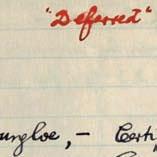 "Deferred"
ungloe, – Certi